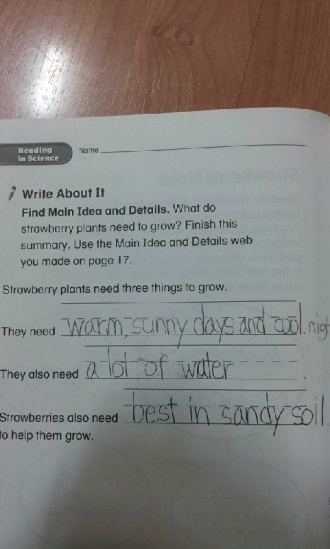 Reading
in Science
Name
Write About It
Find Main Idea and Details. What do
strawberry plants need to grow? Finish this
summary. Use the Main Idea and Details web
you made on page 17.
Strawberry plants need three things to grow.
They need warm, sunny days and cool. nigh
They also need a lot of water.
Strawberries also need best in sandy soil
to help them grow.